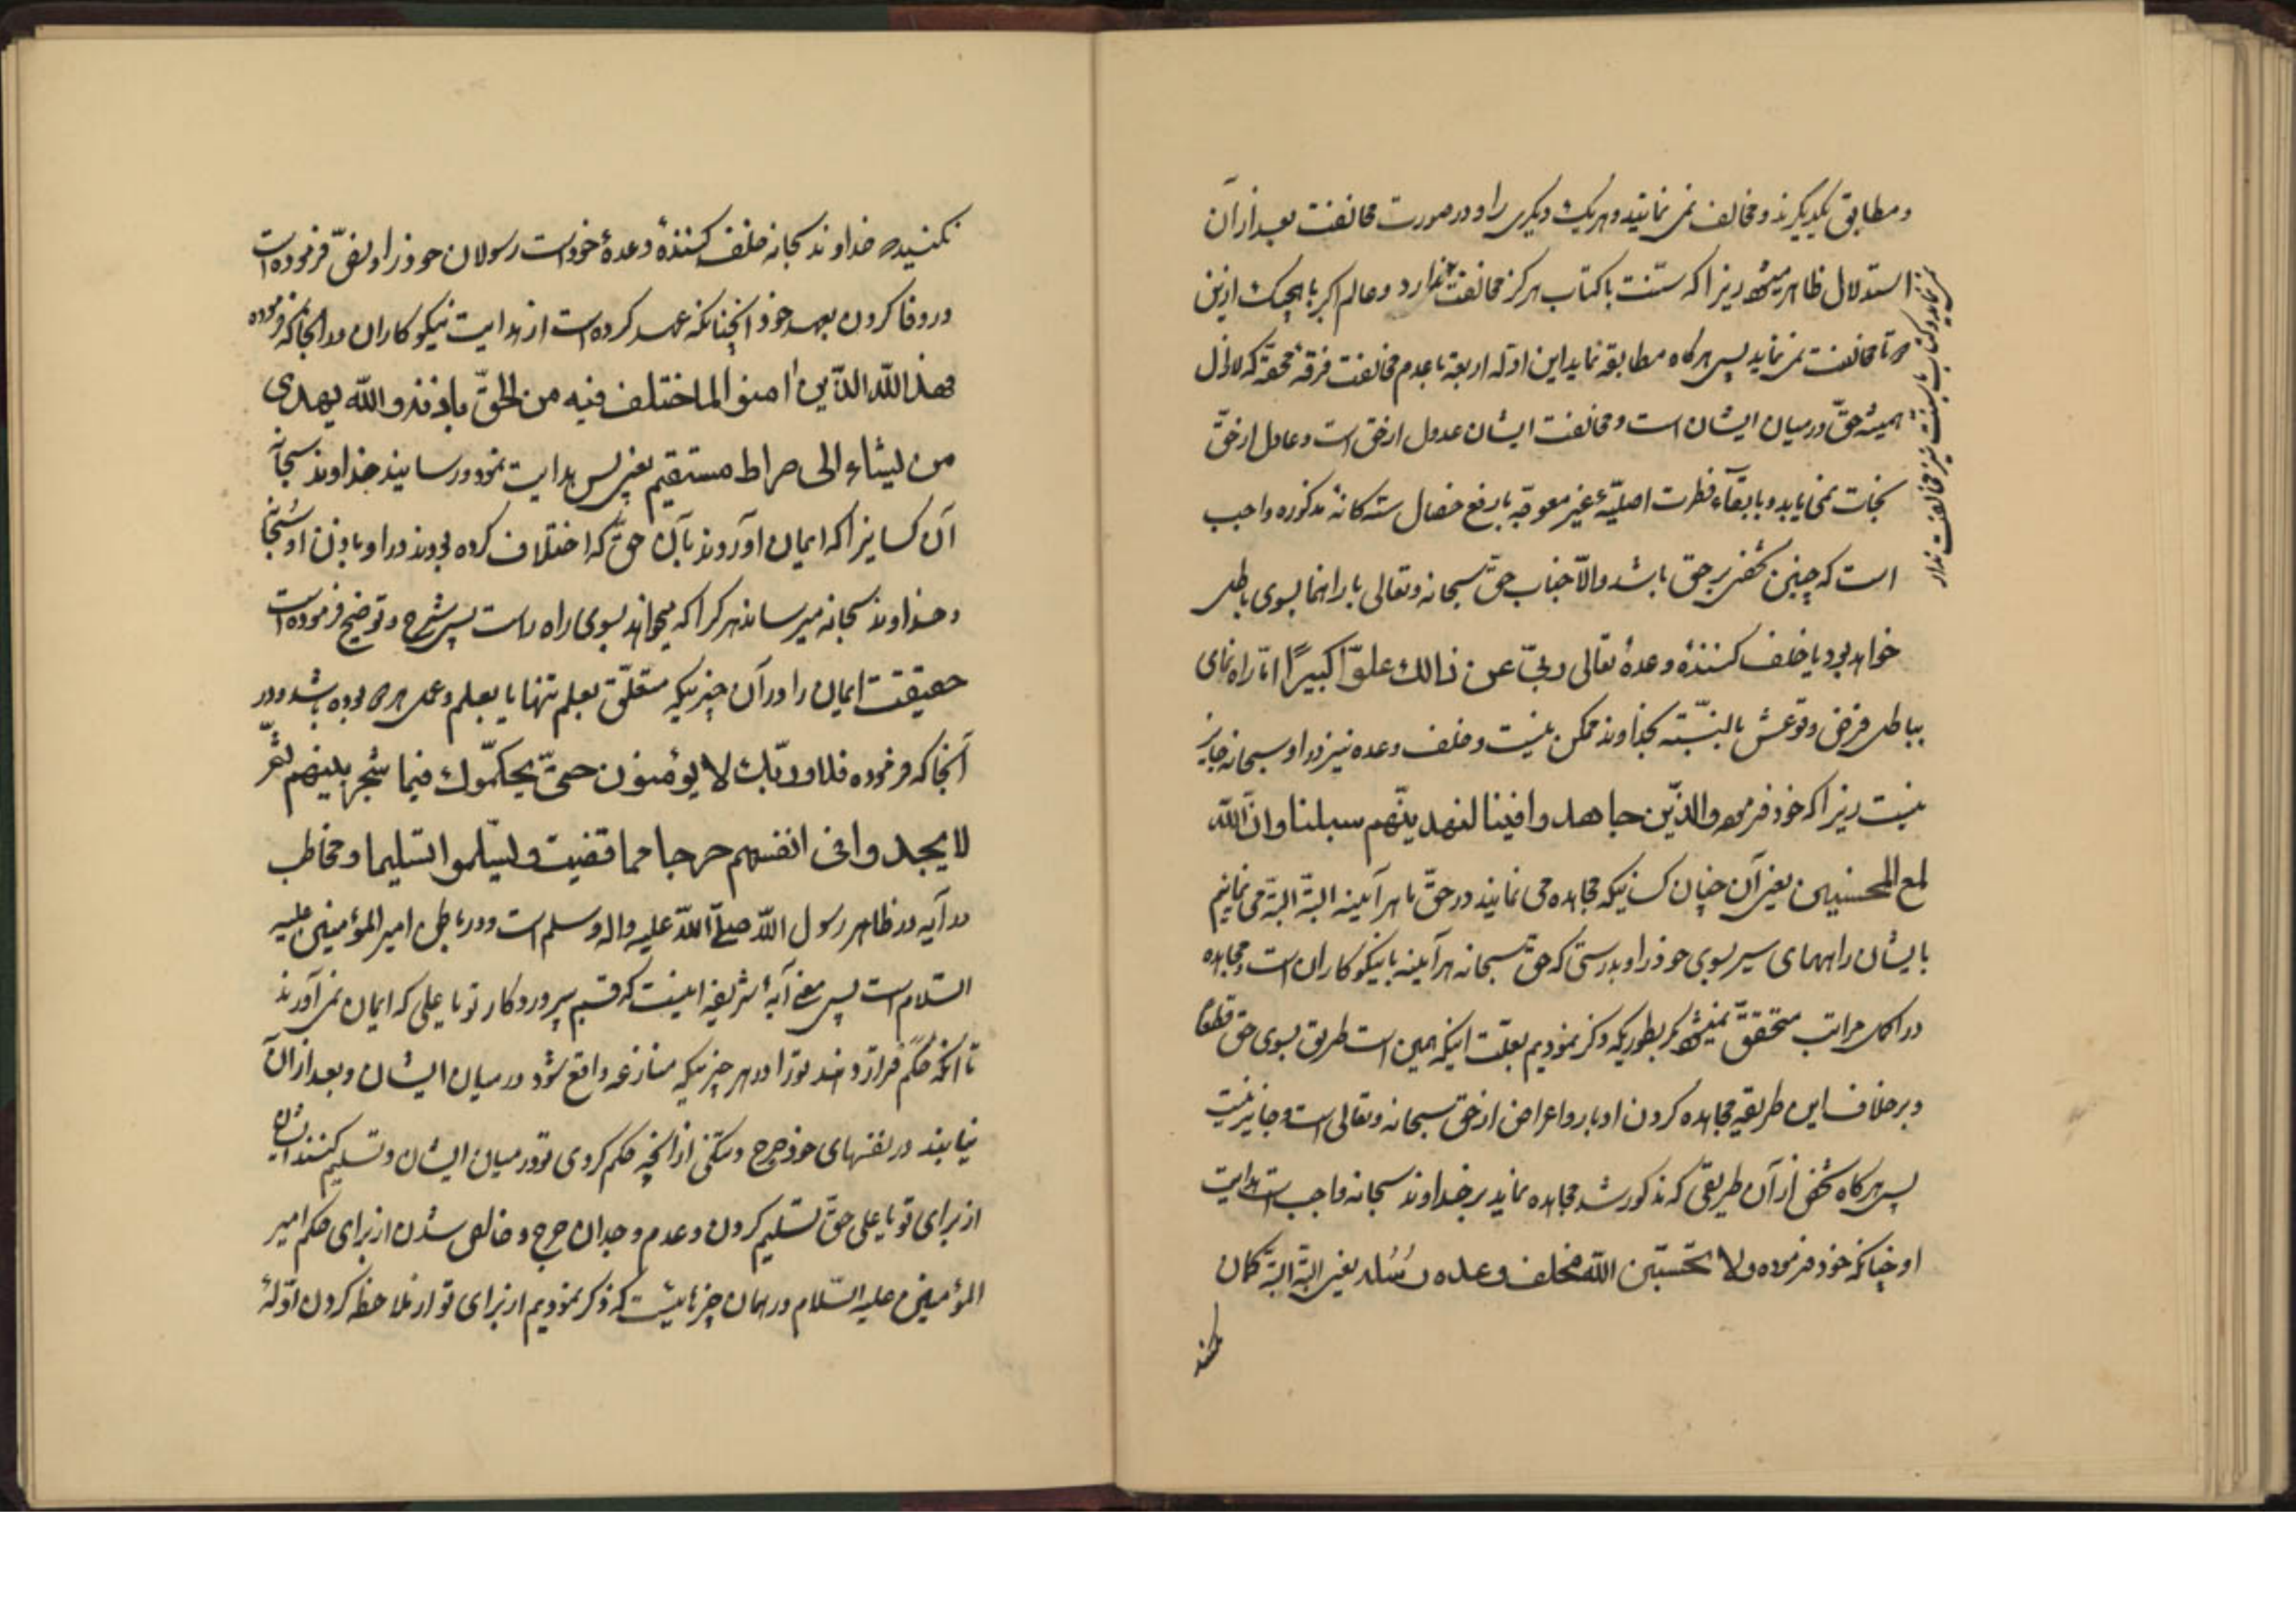 و مطابق یکدیگرند و مخالف نمی نمایند و هریک دیگری را و در صورت مخالفت بعد از آن
استدلال ظاهر میشود زیرا که سنت با کتاب هرگز مخالفت ندارد و عالم اکبر با هیچیک ازین
تا مخالفت نمی نماید پس هرگاه مطابقه نماید این ادله اربعه با عدم مخالفت فرقهٔ محقه که لایزال
همیشه حق در میان ایشان است و مخالفت ایشان عدول از حق است و عادل از حق
نجات نمی یابد و با بقاء فطرت اصلیّهٔ غیر معوجّه با رفع خصال سته کانهٔ مذکوره واجب
است که چنین شخص بر حق باشد والّا جناب حق سبحانه و تعالی یا راهنما بسوی باطل
خواهد بود یا خلف کنندهٔ وعدهٔ تعالی ربّی عن ذالک علوّاً کبیرًا امّا راه نمای
بباطل فرض وقوعش بالنسبته بخداوند ممکن نیست و خلف وعده نیز در او سبحانه جایز
نیست زیرا که خود فرموده والذّین جاهدوا فینا لنهدینّهم سبلنا وانّ اللّه
لمع المحسنین یعنی آن چنان کسانیکه مجاهده می نمایند در حقّ ما هر آینه البتّه البتّه می نمایم
بایشان راههای سیر بسوی خود را و بدرستی که حق سبحانه هر آینه با نیکوکاران است و مجاهده
در اکمل مراتب متحقق نمیشود مگر بطوریکه ذکر نمودیم بعلّت اینکه همین است طریق بسوی حق قطعا
و بر خلاف این طریقه مجاهده کردن ادبار و اعراض از حق سبحانه و تعالی است و جایز نیست
پس هرگاه شخص از آن طریقی که مذکور شد مجاهده نماید بر خداوند سبحانه واجب است هدایت
او چنانکه خود فرموده و لا تحسبنّ اللّه مخلف وعده رُسُله یعنی البتّه البتّه کمان
مکنید
و کتاب با سنت نیز مخالفت ندارد
نکنید خداوند سبحانه خلف کنندهٔ وعدهٔ خود است رسولان خود را و نصّ فرموده است
در وفا کردن بعهد خود آنچنانکه عهد کرده است از هدایت نیکو کاران در آنجا که فرموده
فهد اللّه الذّین امنوا لما ختلف فیه من الحقّ باذنه و اللّه یهدی
من یشاء الی صراط مستقیم یعنی پس هدایت نمود و رسانید خداوند سبحانه
آن کسانیرا که ایمان آوردند بآن حقّ که اختلاف کرده بودند در او باذن او سُبحانه
و خداوند سبحانه میرساند هر کرا که میخواهد بسوی راه راست پس شرح و توضیح فرموده است
حقیقت ایمان را در آن چیزیکه متعلّق بعلم تنها یا بعلم و عمل هر دو بوده باشد در
آنجا که فرموده فلا و ربّک لا یؤمنون حتیّ یحکمّوک فیما شجر بینهم ثمّ
لا یجدوا فی انفسهم حرجا مما قضیت و لیسّلموا تسلیما و مخاطب
در آیه در ظاهر رسول اللّه صلّی اللّه علیه و اله و سلم است و در باطن امیر المؤمنین علیه
السّلام است پس معنی آیهٔ شریفه اینست که قسم بپروردکار تو یا علی که ایمان نمی آورند
تا آنکه حَکَم قرار دهند تو را در هر چیزیکه منازعه واقع شود در میان ایشان و بعد از آن
نیابند در نفسهای خود حرج و تنکی از آنچه حکم کردی تو در میان ایشان و تسلیم کنند ایشان
از برای تو یا علی حقّ تسلیم کردن و عدم وجدان حرج و خالص شدن از برای حکم امیر
المؤمنین علیه السّلام در همان چیزهائیست که ذکر نمودیم از برای تو از ملاحظه کردن ادّلهٔ